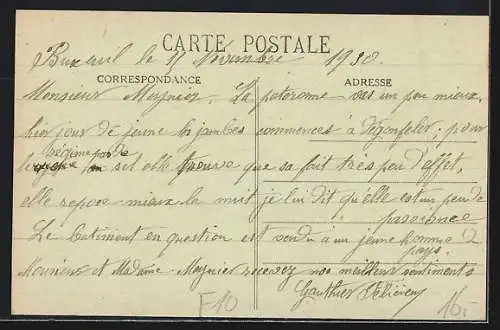 CARTE POSTALE
Buxeuil le 11 Novembre 1930.
CORRESPONDANCE
ADRESSE
Monsieur Meynier. La personne va un peu mieux,
hier jour de jeune les jambes commences à dégonfler; pour
le régime sans sel elle trouve que sa fait très peu d'effet,
elle repose mieux la nuit je lui dit qu'elle est un peu de
patience
Le batiment en question est vendu à un jeune homme du
pays.
Monsieur et Madame Meynier recevez nos meilleurs sentiments
Gauthier
F10
16.-